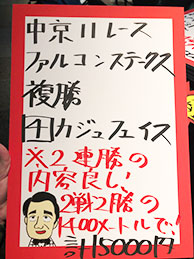 中京11レース
ファルコンステークス
複勝
④カジュフェイス
※2連勝の
内容良し!
2戦2勝の
1400メートルで!
5000円